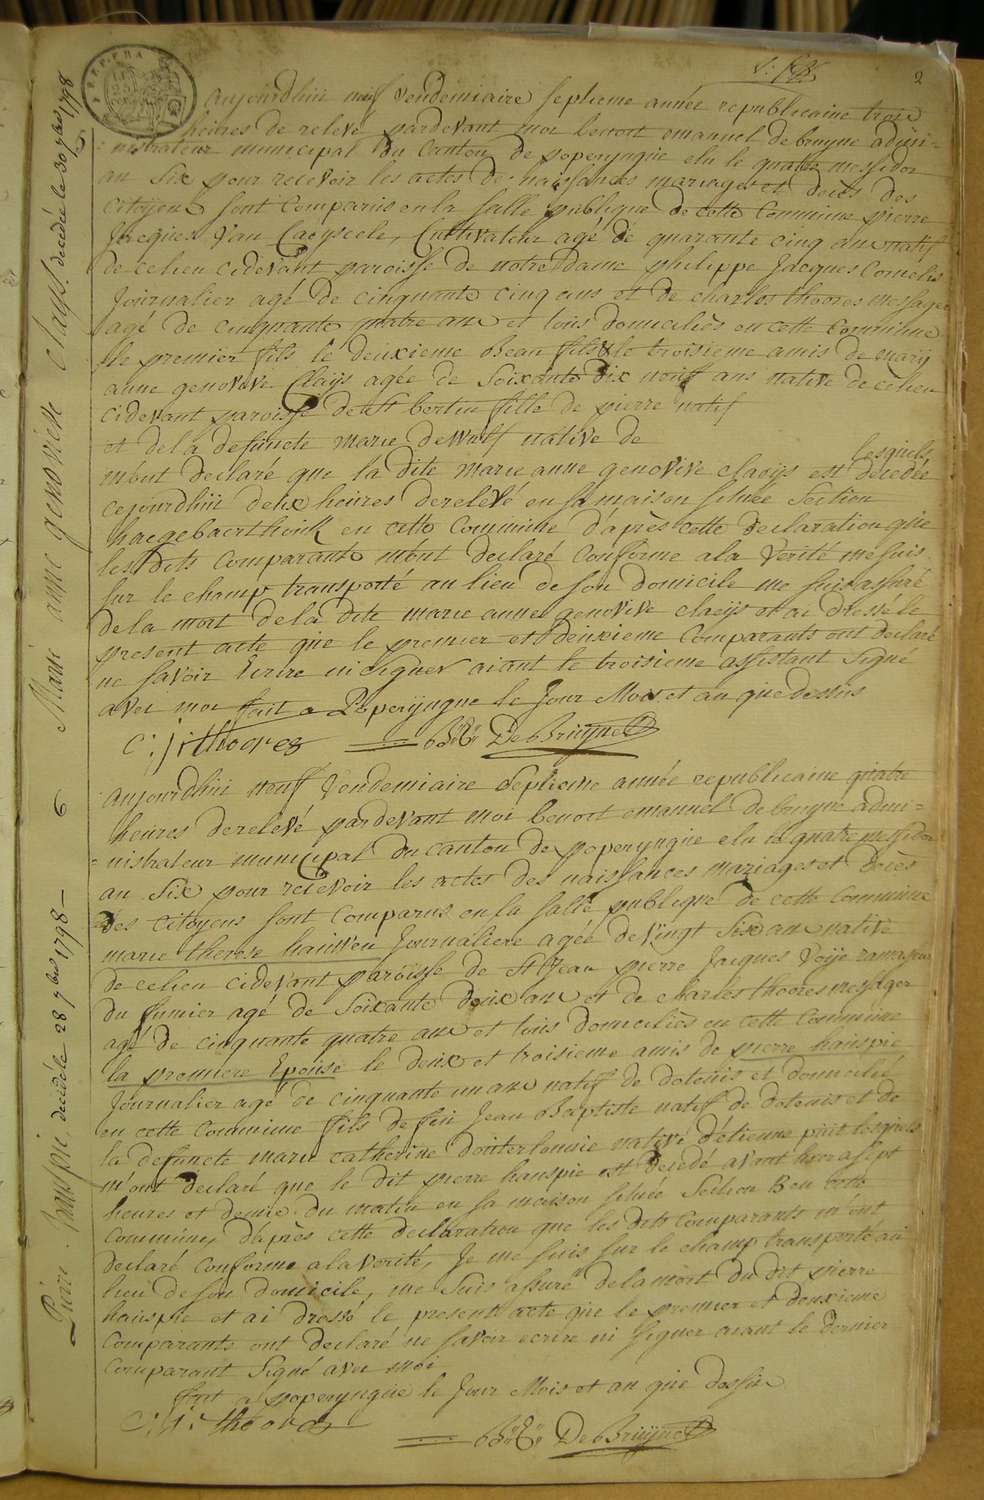 2
aujourdhui neuf vendemiaire septieme année republicaine trois
heires de relevé pardevant moi benoit emanuel de bruyne admi=
=nistrateur municipal du Canton de poperyngue elu le quatre messidor
an Six pour recevoir les actes de naissances mariages et decès des
Citoyens sont comparus en la salle publique de cette Commune pierre
Jacques Van Caeyseele, Cultivateur agé de quarante cinq ans natif
de ce lieu cidevant paroisse de notre dame philippe Jacques Cornelis
Journalier agé de cinquante cinq ans et de charles thoores messager
agé de cinquante quatre ans et tous domiciliés en cette Commune
le premier fils le deuxieme Beau fils le troisieme amis de marie
anne genovive Claeijs agée de Soixante dix neuff ans native de ce lieu
cidevant paroisse de St bertin fille de pierre natif
et de la defuncte marie dewulf native de
lesquels
m'ont declaré que la dite marie anne genovive claeijs est decedée
cejourdhui deux heires de relevé en sa maison située Section
haegebaerthoek en cette Commune d'après cette declaration que
les dits Comparants m'ont declaré Conforme a la Verité me suis
sur le champ transporté au lieu de son domicile me suis assuré
de la mort de la dite marie anne genovive claeijs et ai dressé le
present acte que le premier et deuxieme Comparants ont declaré
ne savoir Ecrire ni signer aiant le troisieme assistant Signé
avec moi fait a Poperyngue le Jour Mois et an que dessus
C: J: thoores De Bruyne
Marie anne genovieve Claeijs. decedée le 30 7bre 1798
6
aujourdhui neuff Vendemiaire Septieme année republicaine quatre
heures de relevé pardevant moi benoit emanuel de bruyne admi=
=nistrateur municipal du canton de poperyngue elu le quatre messidor
an Six pour recevoir les actes des naissances mariages et decès
des citoyens sont Comparus en la salle publique de cette Commune
marie therese hauwen Journaliere agée de vingt Six ans native
de ce lieu cidevant paroisse de St Jean pierre Jacques Voije ramasseur
du fumier agé de Soixante deix ans et de charles thoores messager
agé de cinquante quatre ans et tous domiciliés en cette Commune
la premiere Epouse le deux et troisieme amis de pierre hanspie
Journalier agé de cinquante un ans natif de dotenis et domicilié
en cette Commune fils de feu Jean Baptiste natif de dotenis et de
la defuncte marie catherine native d'etienne lesquels
m'ont declaré que le dit pierre hanspie est decedé avant hier a sept
heures et demie du matin en sa maison située Section B en cette
Commune, d'après cette declaration que les dits Comparants m'ont
declaré Conforme a la verité, Je me suis sur le champ transporté au
lieu de son domicile, me Suis assuré de la mort du dit pierre
hanspie et ai dressé le present acte que le premier et deuxieme
Comparants ont declaré ne savoir ecrire ni signer aiant le dernier
Comparant Signé avec moi
fait a poperyngue le Jour Mois et an que dessus
C: J: thoores De Bruyne
Piere hanspie decedé le 28 7bre 1798